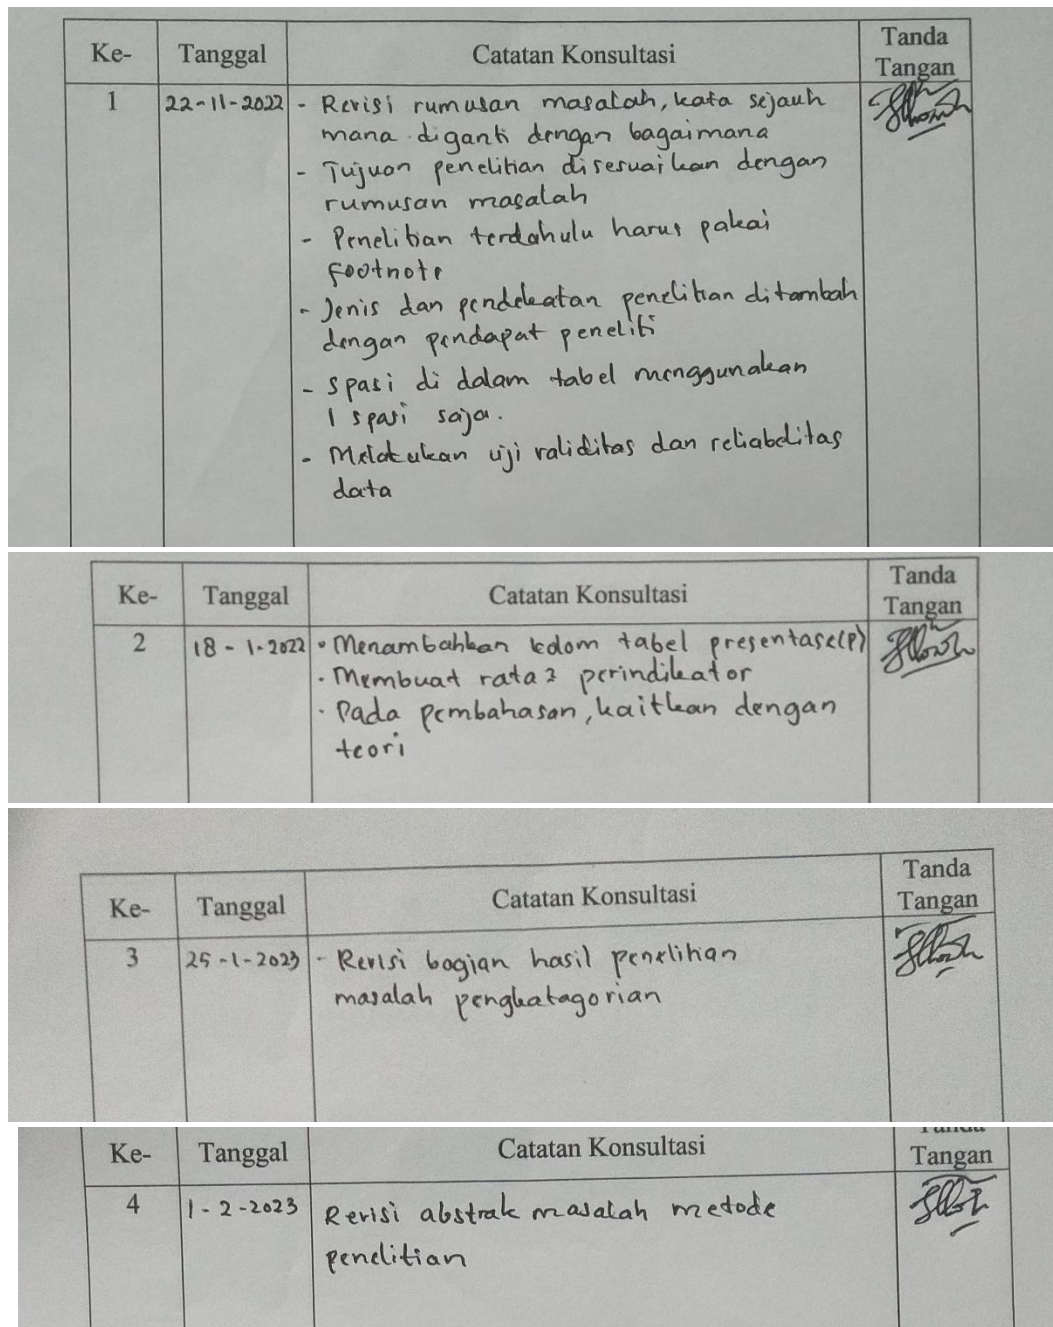 Ke- Tanggal Catatan Konsultasi Tanda
Tangan
1 22-11-2022 - Revisi rumusan masalah, kata sejauh
mana diganti dengan bagaimana
- Tujuan penelitian disesuaikan dengan
rumusan masalah
- Penelitian terdahulu harus pakai
footnote
- Jenis dan pendekatan penelitian ditambah
dengan pendapat peneliti
- Spasi di dalam tabel menggunakan
1 spasi saja.
- Melakukan uji validitas dan reliabelitas
data
Ke- Tanggal Catatan Konsultasi Tanda
Tangan
2 18-1-2022 • Menambahkan kolom tabel presentase(P)
• Membuat rata2 perindikator
• Pada pembahasan, kaitkan dengan
teori
Ke- Tanggal Catatan Konsultasi Tanda
Tangan
3 25-1-2023 - Revisi bagian hasil penelitian
masalah pengkatagorian
Ke- Tanggal Catatan Konsultasi Tanda
Tangan
4 1-2-2023 Revisi abstrak masalah metode
penelitian